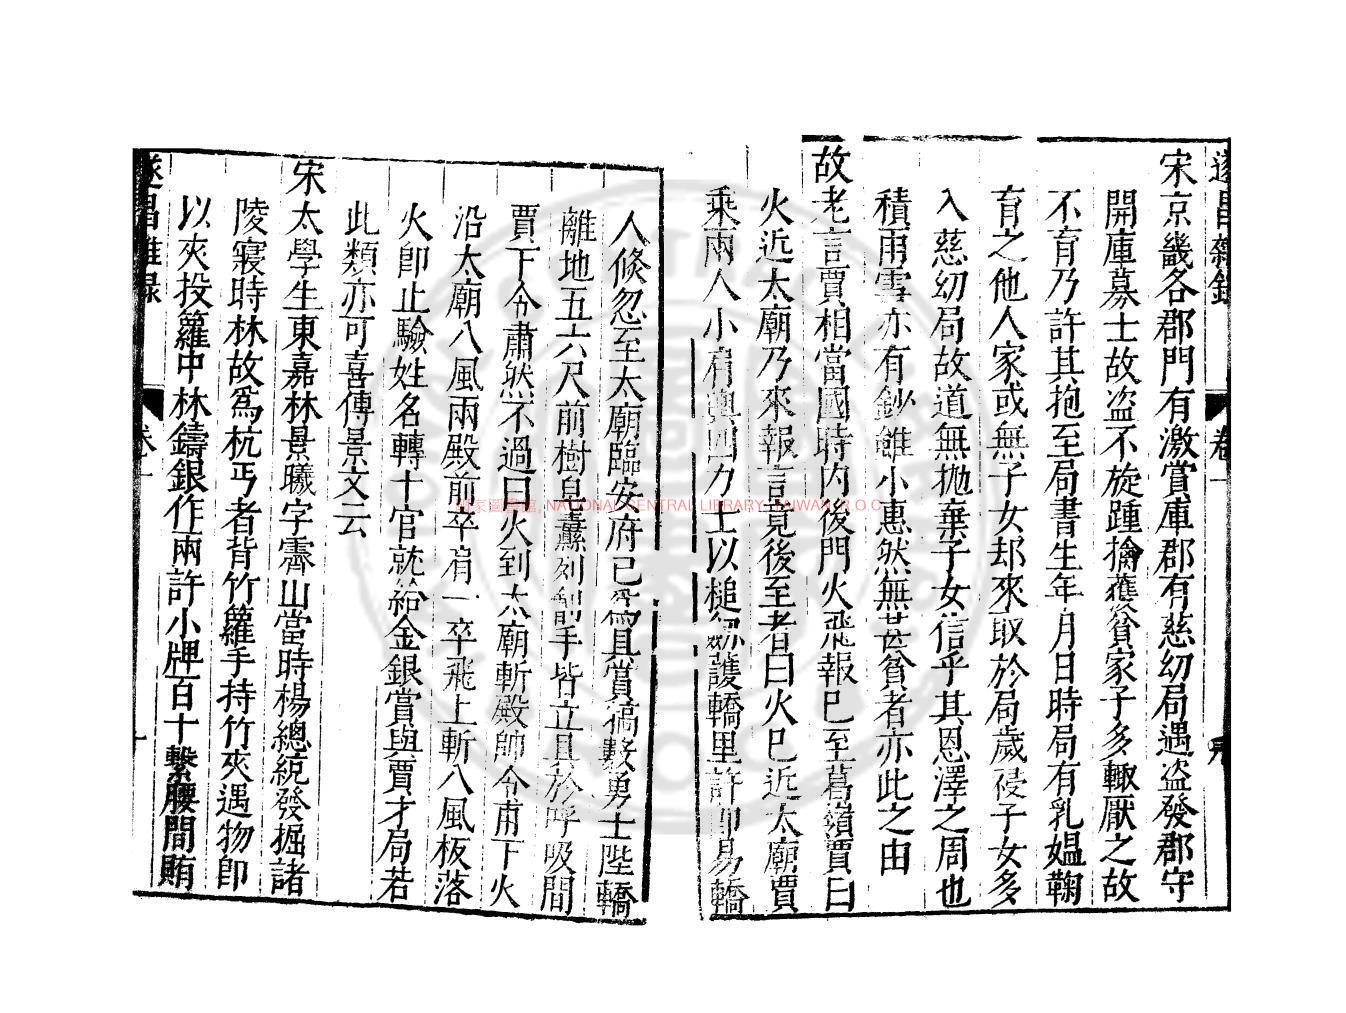 遂昌雜錄
卷一
宋京畿各郡門有激賞庫郡有慈幼局遇盜發郡守
開庫募士故盜不旋踵擒獲貧家子多輙厭之故
不育乃許其抱至局書生年月日時局有乳媼鞠
育之他人家或無子女却來取於局歲祲子女多
入慈幼局故道無抛棄子女信乎其恩澤之周也
積雨雪亦有鈔雖小惠然無甚貧者亦此之由
故老言賈相當國時內後門火飛報已至葛嶺賈曰
火近太廟乃來報言竟後至者曰火已近太廟賈
乘兩人小肩輿四力士以槌劔護轎里許即易轎
人倏忽至太廟臨安府已爲具賞犒數勇士陛轎
離地五六尺前樹皂纛列劊手皆立具於呼吸間
賈下令肅然不過曰火到太廟斬殿帥令甫下火
沿太廟八風兩殿前卒肩一卒飛上斬八風板落
火即止驗姓名轉十官就給金銀賞與賈才局若
此類亦可喜傳景文云
宋太學生東嘉林景曦字霽山當時楊總統發掘諸
陵寢時林故爲杭丐者背竹籮手持竹夾遇物即
以夾投籮中林鑄銀作兩許小牌百十繫腰間賄
遂昌雜录
卷一
十
國家圖書館 NATIONAL CENTRAL LIBRARY, TAIWAN, R.O.C